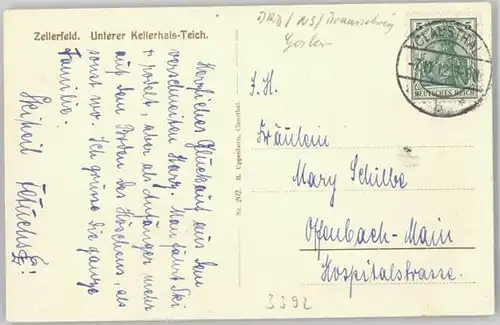 Zellerfeld. Unterer Kellerhals-Teich.
Herzliches Glückauf aus dem
verschneiten Harz. Man fährt Ski
u. rodelt, aber als Anfänger mehr
auf dem Boden des Höschens, als
sonst wo. Ich grüsse die ganze
Familie.
Skiheil
Nr. 202. H. Uppenborn, Clausthal.
Goslar
CLAUSTHAL
5
DEUTSCHES REICH
b
Fräulein
Mary Schilbe
Offenbach-Main
Hospitalstrasse.
3392